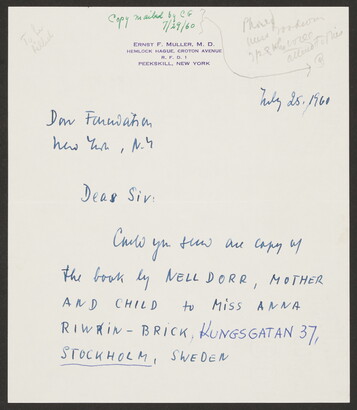 Copy mailed by CG
7/29/60
ERNST F. MULLER, M. D.
HEMLOCK HAGUE, CROTON AVENUE
R. F. D. 1
PEEKSKILL, NEW YORK
July 25, 1960
Dorr Foundation
New York, N.Y
Dear Sir:
Could you send one copy of
the book by NELL DORR, MOTHER
AND CHILD to MISS ANNA
RIWKIN-BRICK, KUNGSGATAN 37,
STOCKHOLM, SWEDEN